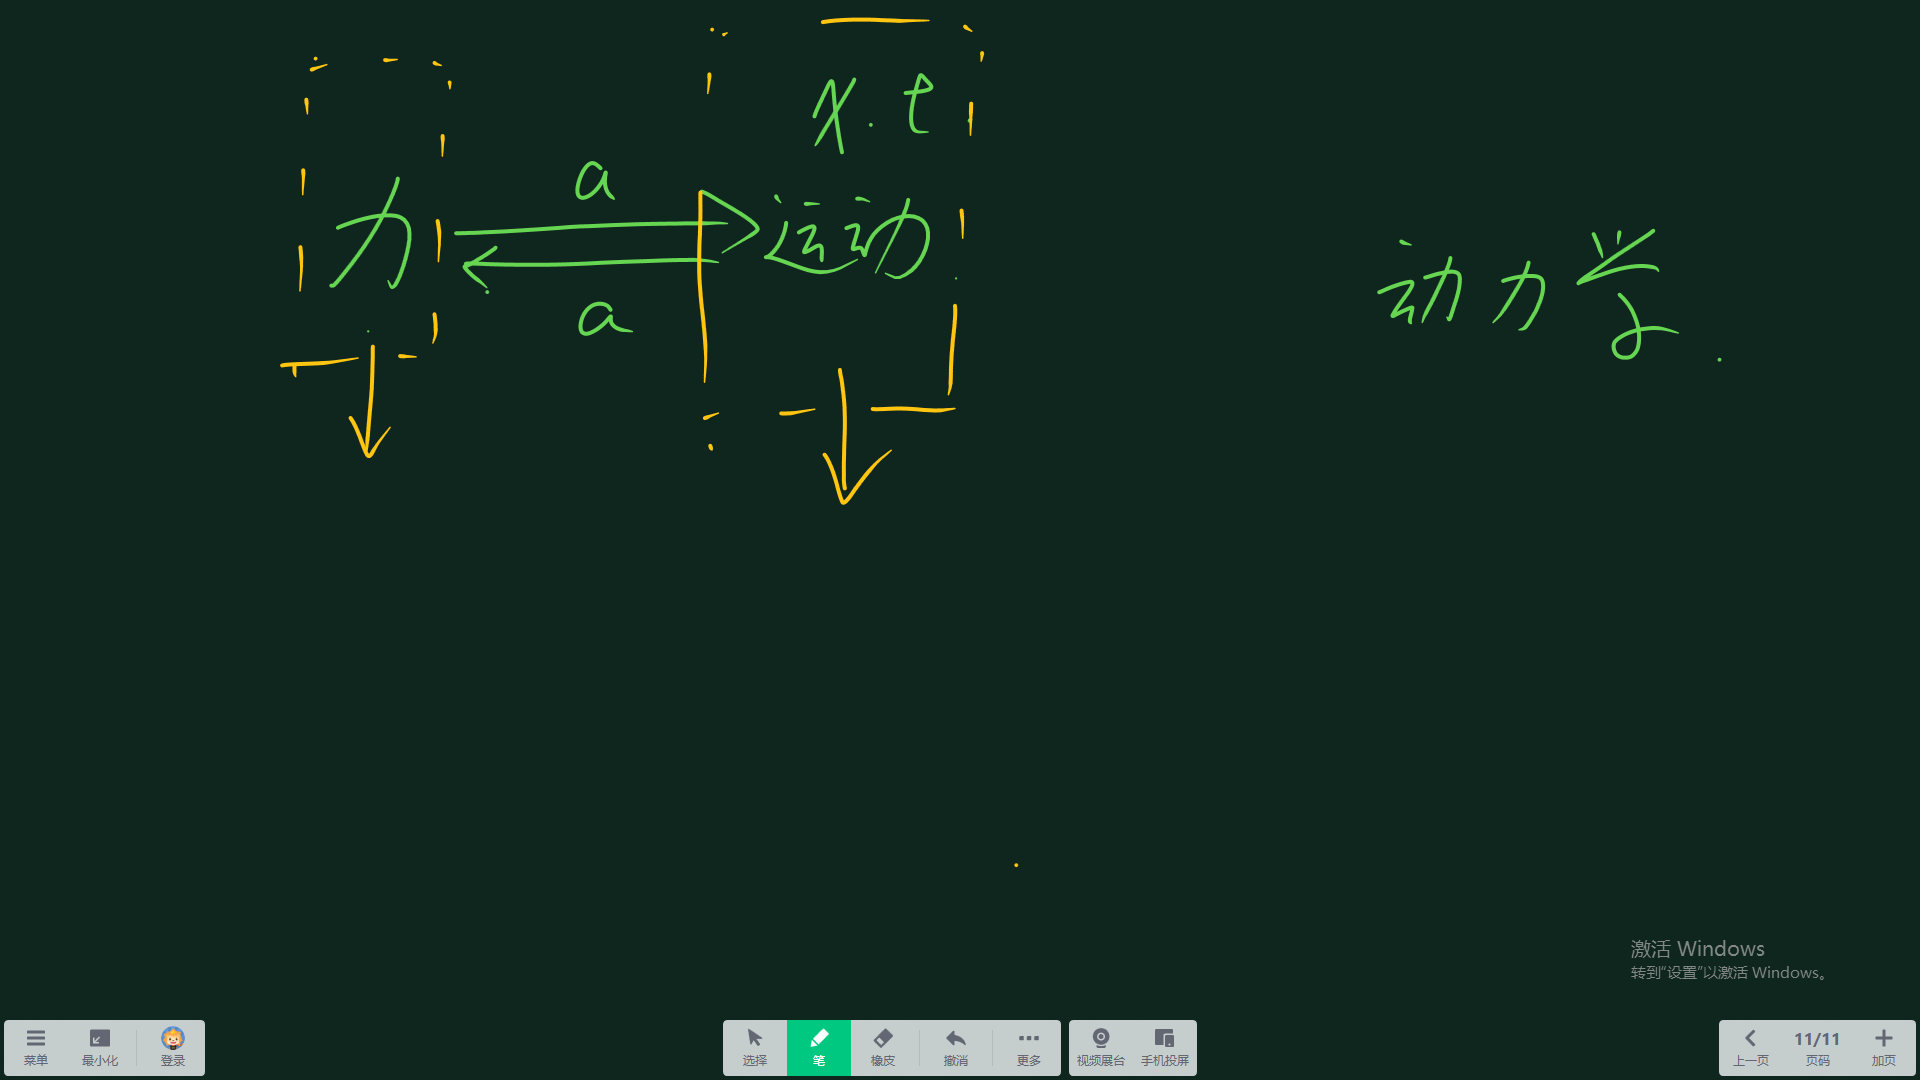 x.t
a
力 运动
a
动力学
激活 Windows
转到“设置”以激活 Windows。
菜单 最小化 登录 选择 笔 橡皮 撤消 更多 视频展台 手机投屏 上一页 11/11 页码 加页